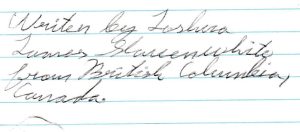 Writen by Joshua
James Skureenwhite
from British Columbia,
Canada.